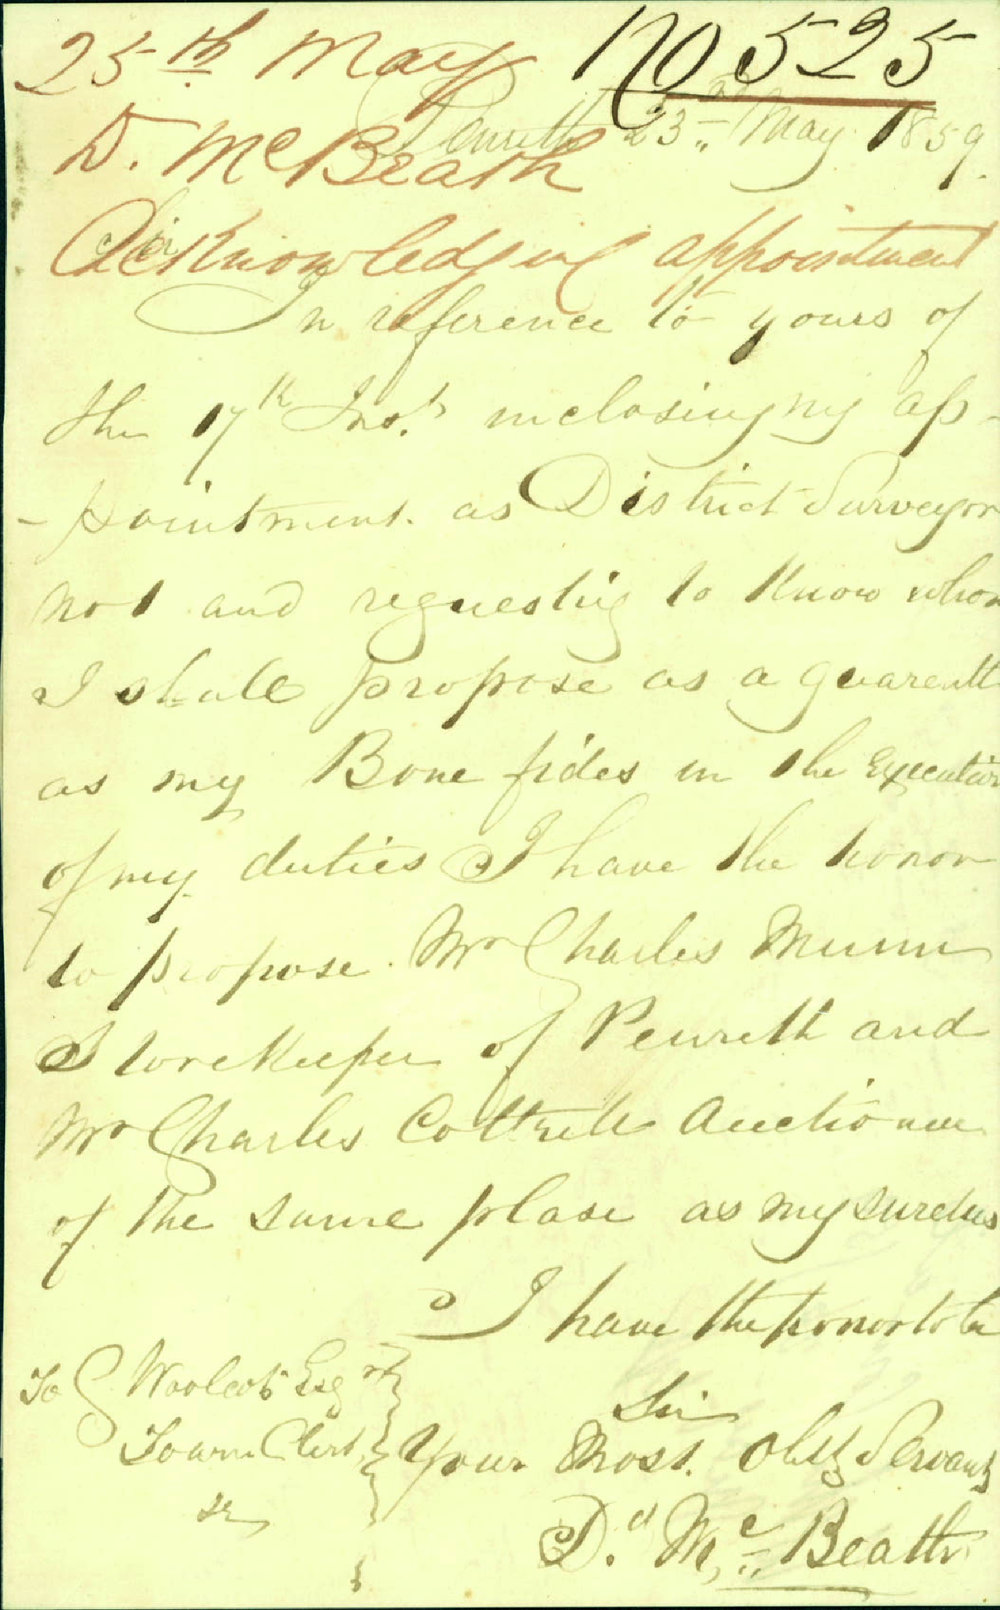 25th May No 525
Penrith 23rd May 1859
D. McBeath
Acknowledging appointment
Sir
In reference to yours of
the 17th Inst. inclosing my ap-
-pointment. as District Surveyor
not and requesting to Know whom
I shall propose as a guarentt
as my Bone fides in the Execution
of my duties I have the honor
to propose. Mr Charles Munn
Storekeeper of Penrith and
Mr Charles Cottrell Auctioneer
of the same plase as my sureties
I have the honor to be
Sir
To C Woolcott Esqr
Town Clerk
Your Most. Obt Servant
D.d Mc Beath